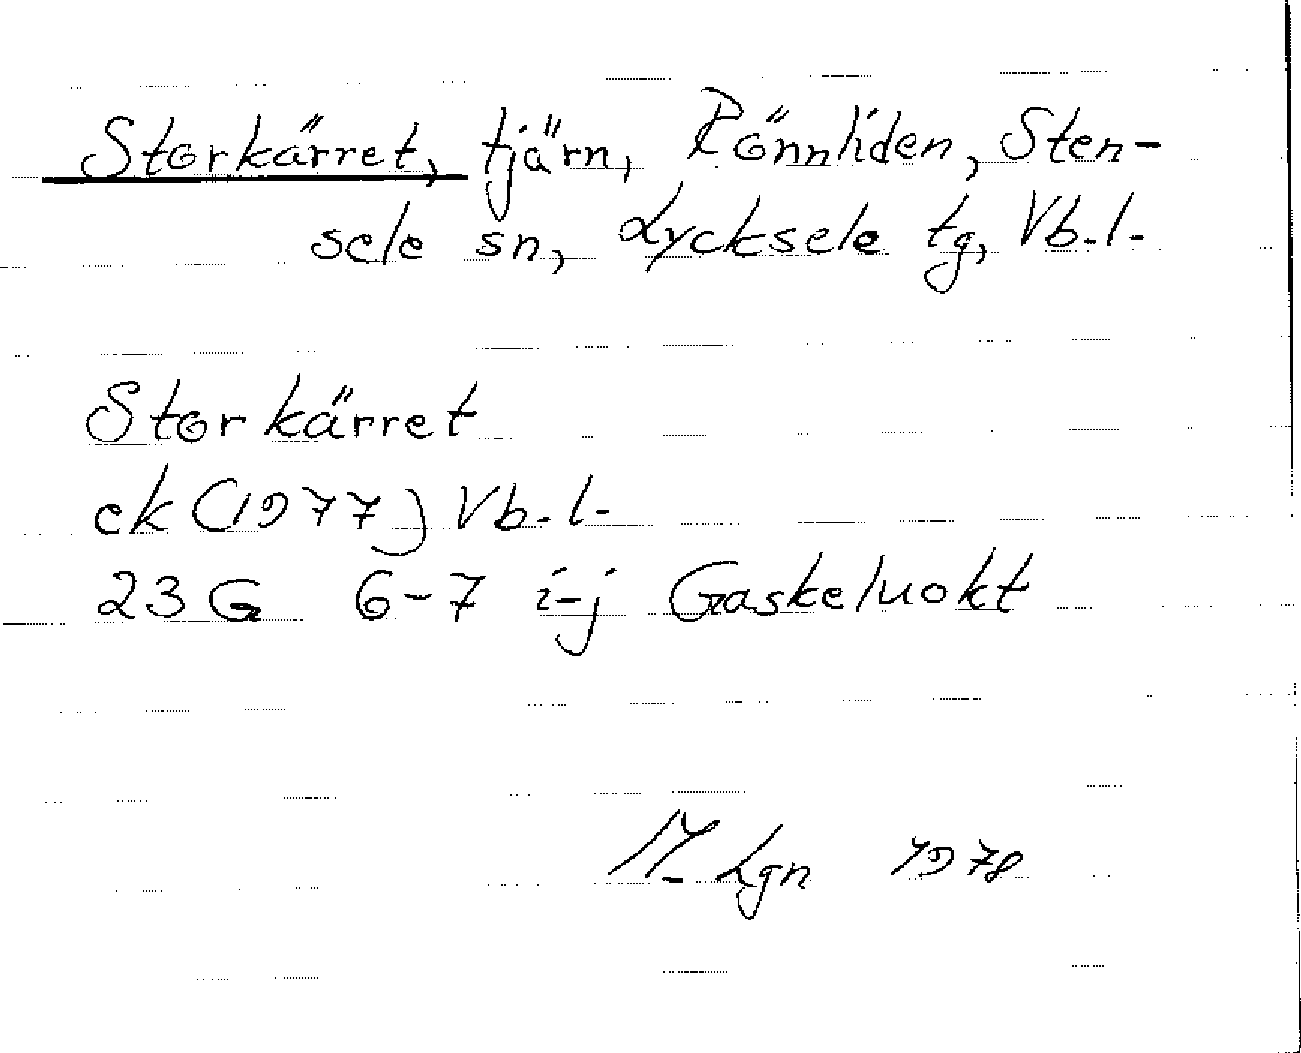 Storkärret, tjärn, Rönnliden, Sten-
sele sn, Lycksele tg, Vb.l.
Storkärret
ek (1977) Vb.l.
23G 6-7 i-j Gaskeluokt
M. Lgn 1978